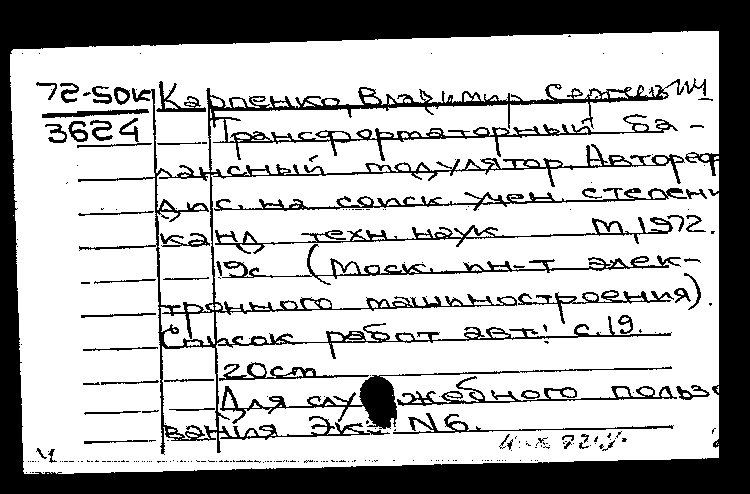 72-50к Карпенко, Владимир Сергеевич
3624 Трансформаторный ба-
лансный модулятор. Автореф
дис. на соиск. учен. степени
канд. техн. наук М., 1972.
19с. (Моск. ин-т элек-
тронного машиностроения).
Список работ авт.: с.19.
20см
Для служебного пользо
вания. Экз. N6.